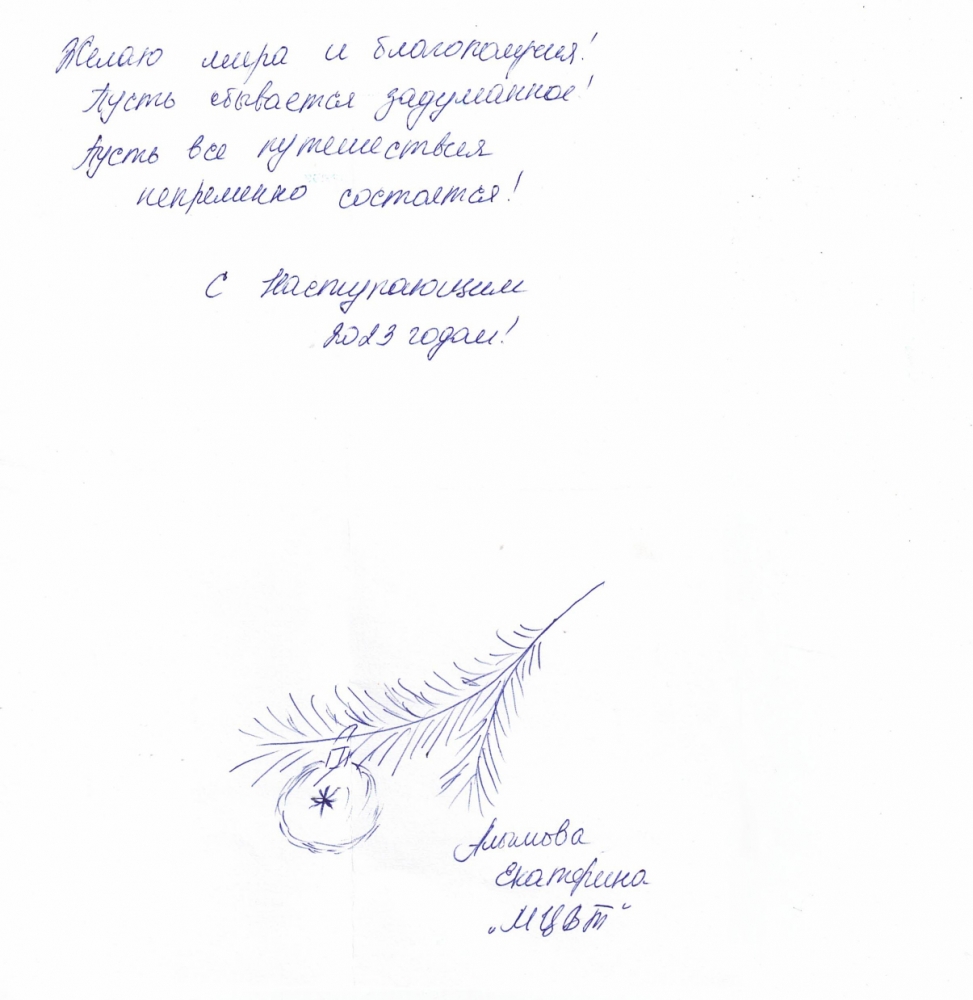 Желаю мира и благополучия!
Пусть сбывается задуманное!
Пусть все путешествия
непременно состоятся!
С Наступающим
2023 годом!
Алымова
Екатерина
„МЦВТ“